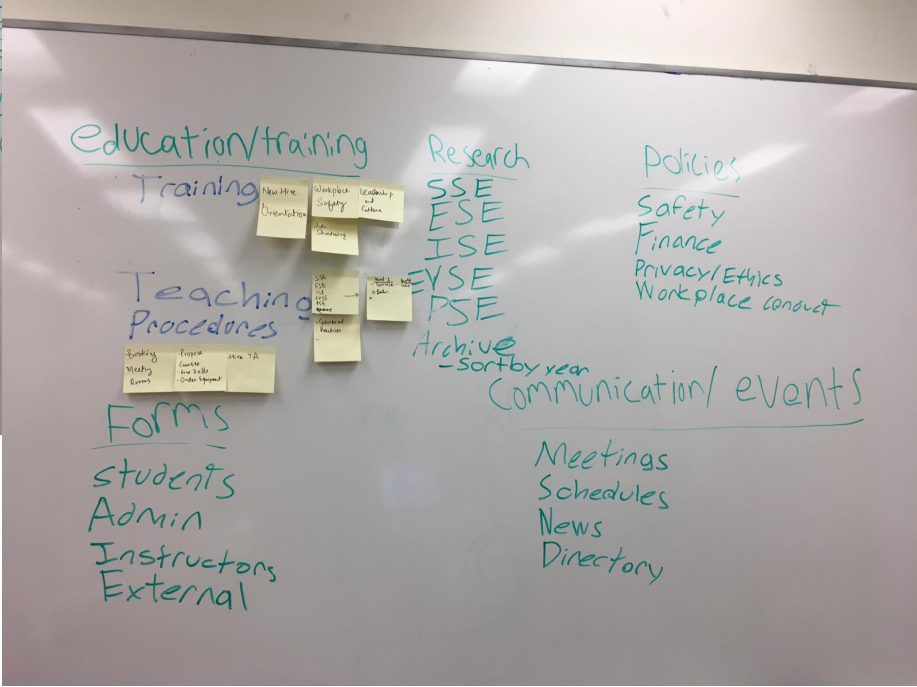 education/training
Training
New Hire
Orientation
Workplace
Safety
Leadership
and
Culture
Job
Shadowing
Teaching
SSE
ESE
ISE
EVSE
PSE
Procedures
Practices
Booking
Meeting
Rooms
-Propose
Courses
-Order Equipment
-Hire TA
Forms
students
Admin
Instructors
External
Research
SSE
ESE
ISE
EVSE
PSE
Archive
-Sort by year
Policies
Safety
Finance
Privacy/Ethics
Workplace conduct
Communication/events
Meetings
Schedules
News
Directory